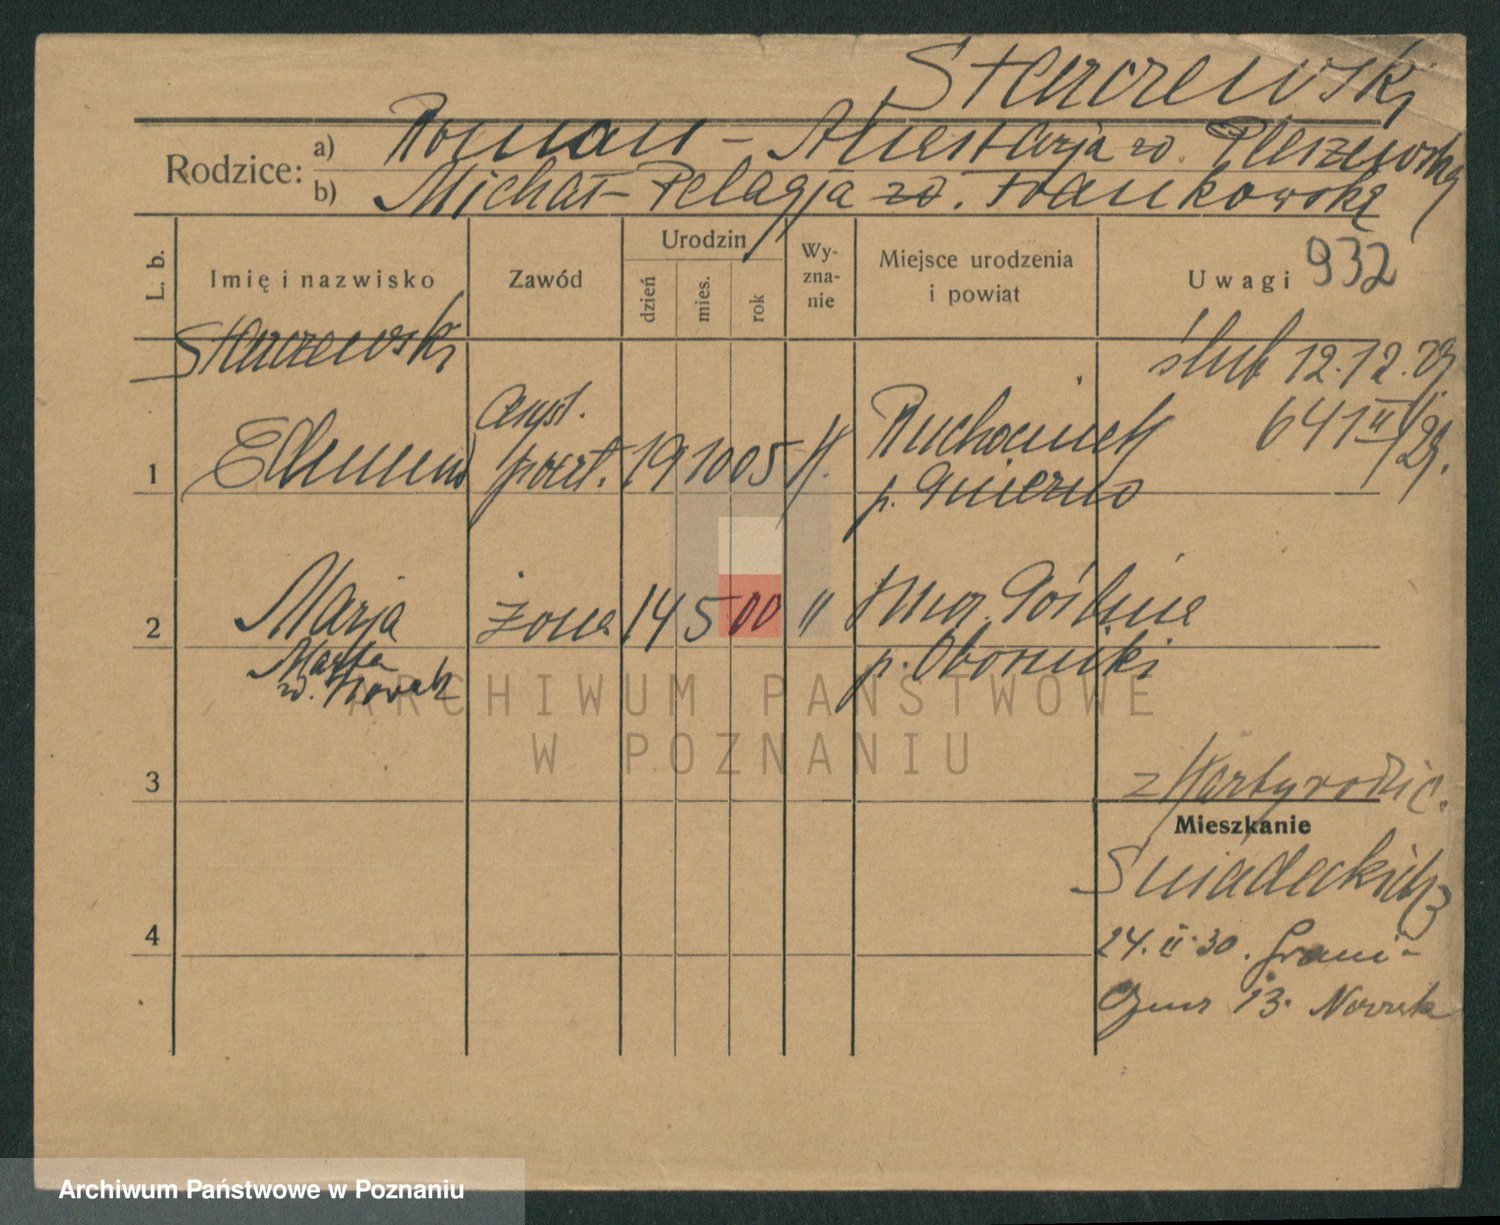 Starczewski
Rodzice: a) Roman - Anastazja zd. Pleszewska
b) Michał - Pelagja zd. Frankowska
L. b.
Imię i nazwisko
Zawód
Urodzin
dzień
mies.
rok
Wy-
zna-
nie
Miejsce urodzenia
i powiat
Uwagi 932
Starczewski
ślub 12.12.29
641 II/29.
1 Edmund
asyst.
poczt. 19 10 05 K.
Ruchocinek
p. Gniezno
2 Marja żona 14 5 00 "
Goślina
p. Oborniki
Marta
zd. Nowak
3
z Karty rodzic.
Mieszkanie
Śniadeckich
4
24.II.30. Grani-
czna 13. Nowak
ARCHIWUM PAŃSTWOWE
W POZNANIU
Archiwum Państwowe w Poznaniu